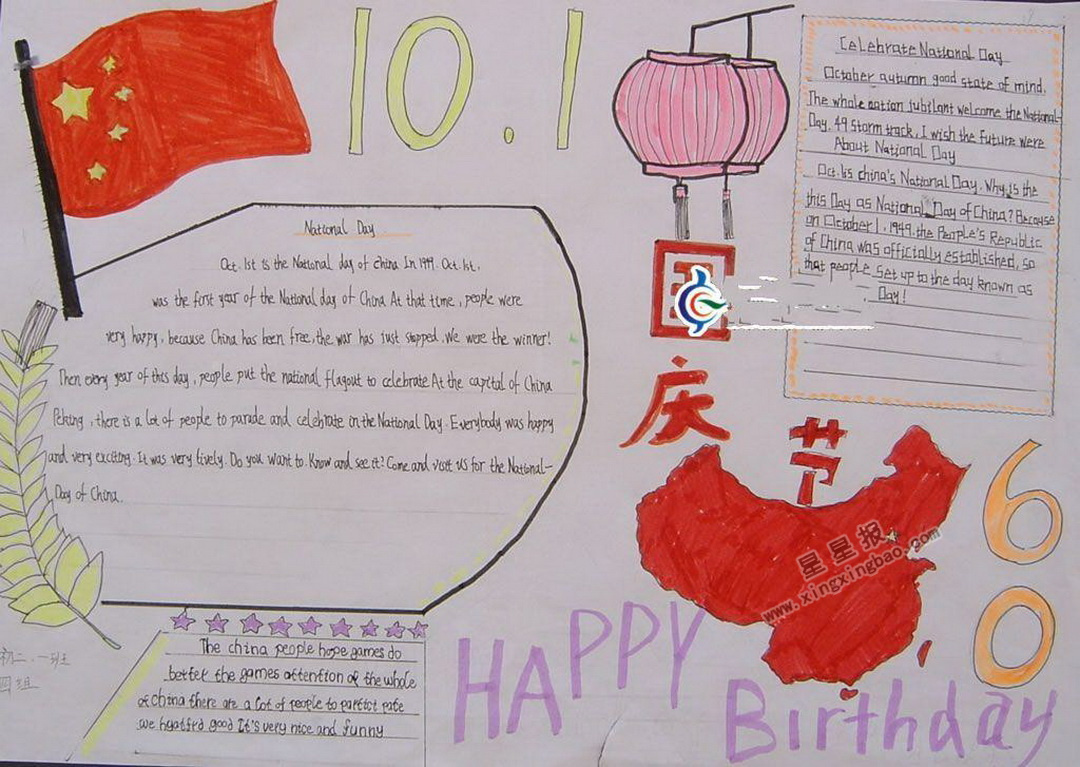 10.1
Celebrate National Day
October autumn good state of mind.
The whole nation jubilant welcome the National-
Day. 49 storm track. I wish the future were
About National Day
Oct. 1is china's National Day. Why is the
this Day as National Day of China? Because
on October 1, 1949. the People's Republic
of China was officially established, so
that people set up to the day known as
Day!
National Day
Oct. 1st is the National day of China In 1949. Oct. 1st,
was the first year of the National day of China At that time, people were
very happy, because China has been free, the war has just stopped. We were the winner!
Then every year of this day, people put the national flagout to celebrate At the capital of China
Peking, there is a lot of people to parade and celebrate in the National Day. Everybody was happy
and very exciting. It was very lively. Do you want to. Know and see it? Come and visit us for the National-
Day of China.
国
庆
节
60
星星报
www.xingxingbao.com
The china people hope games do
better the games attention of the whole
of China there are a lot of people to
we good It's very nice and funny
初二.一班
四组
HAPPY
Birthday